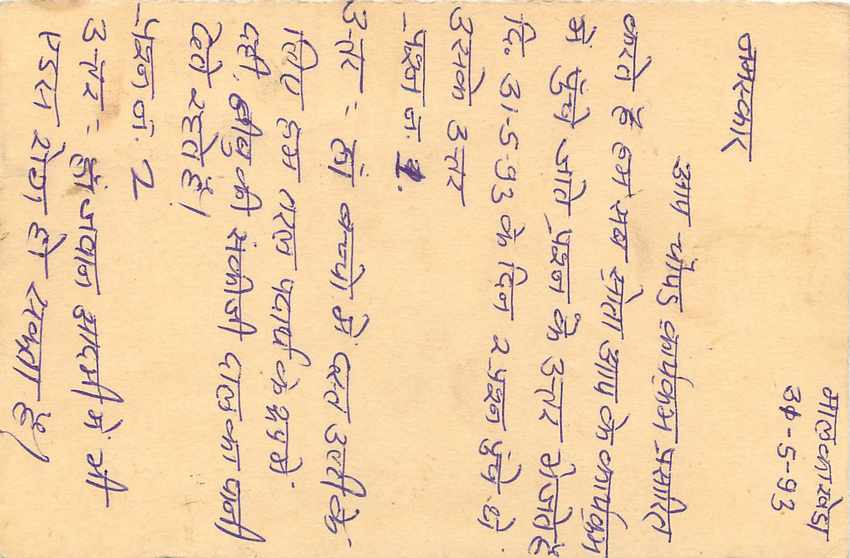 मालकाखेडा
30-5-93
नमस्कार
आप चोपड कार्यक्रम प्रसारित
करते हैं हम सब स्रोता आप के कार्यक्रम
में पुंछे जाते प्रश्न के उत्तर भेजते हैं
दि. 31-5-93 के दिन 2 प्रश्न पुंछे थे
उसके उत्तर
प्रश्न नं 1.
उत्तर = हां बच्चो में दस्त उल्टी के
लिए हम तरल पदार्थ के रूप में
दही, नींबु की संकीजी चाल का पानी
देते रहते हैं।
प्रश्न नं. 2
उत्तर = हां जवान आदमी में भी
एडस रोग हो सकता है।